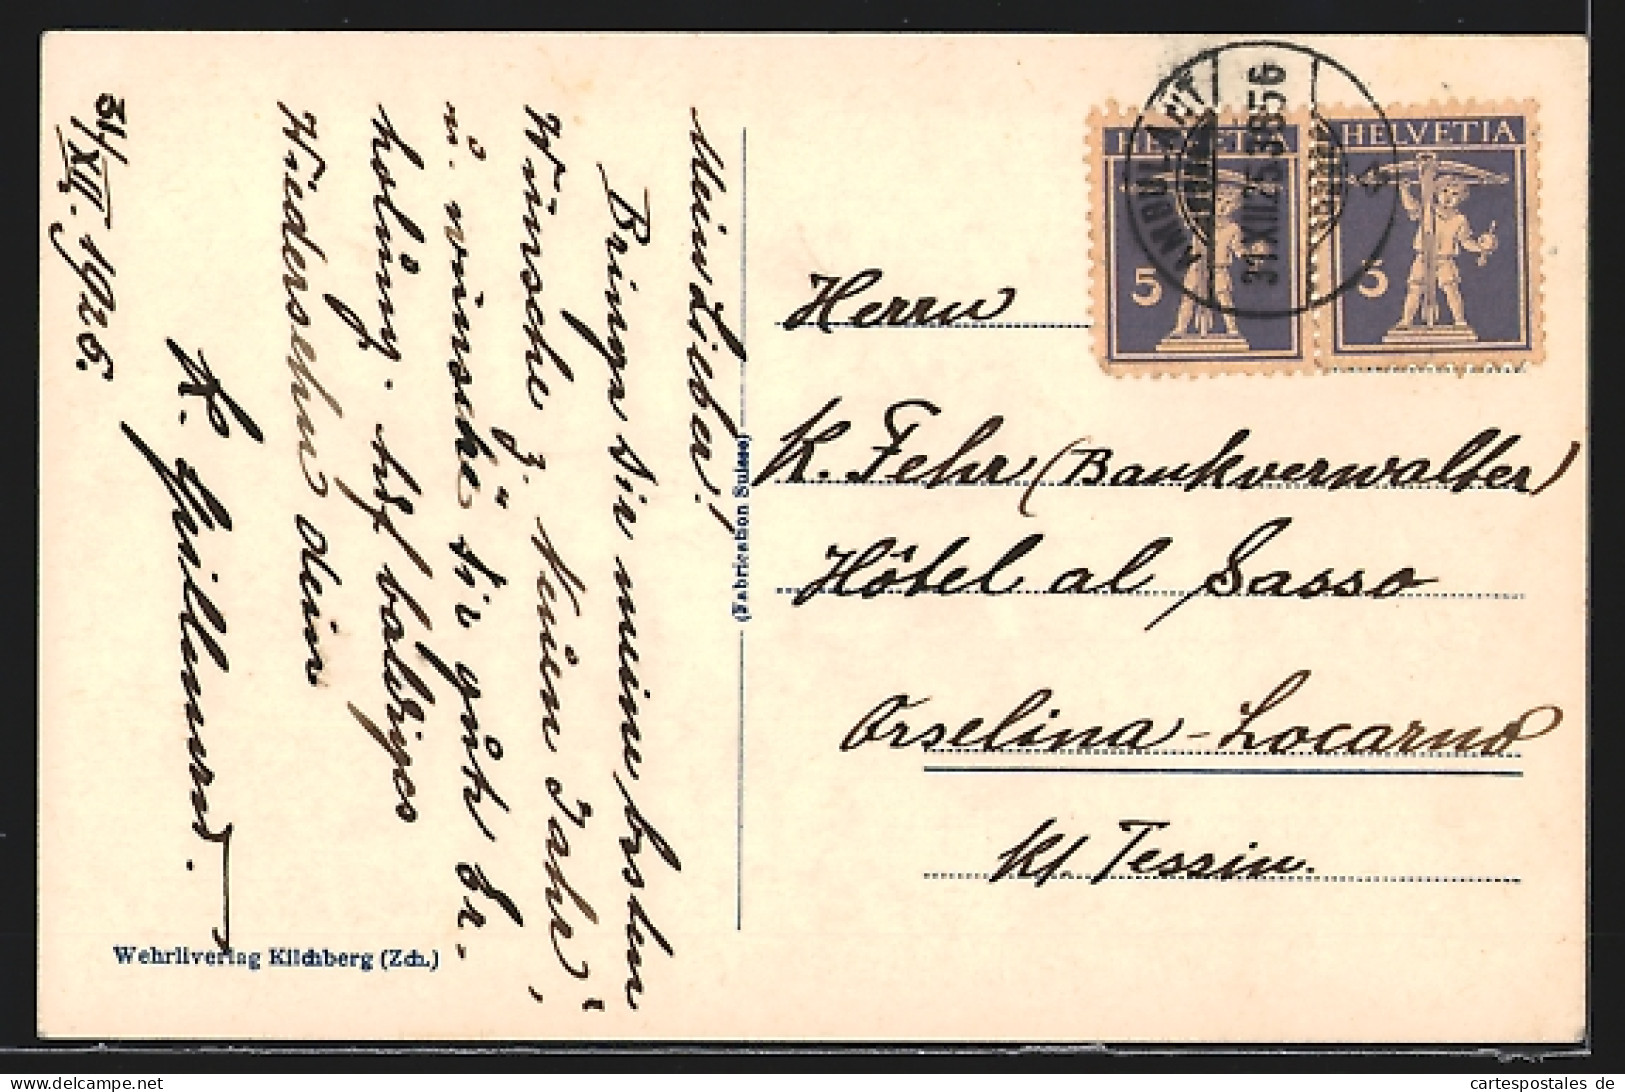 31/XII. 1925.
Mein Lieber!
Bringe Dir meine besten
Wünsche z. "Neuen Jahre"
u. wünsche dir gute Er-
holung. Auf baldiges
Wiedersehen dein
K.
Wehrliverlag Kilchberg (Zch.)
(Fabrication Suisse)
HELVETIA
5
HELVETIA
5
AMBULANT
31.XII.25-3856
Herrn
K. Fehr (Bankverwalter)
Hôtel al Sasso
Orselina-Locarno
Kt. Tessin.
cartespostales de